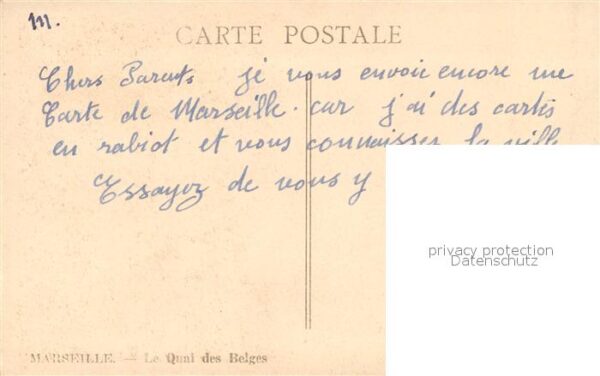 111.
CARTE POSTALE
Chers Parents je vous envoie encore une
Carte de Marseille. car j'ai des cartes
en rabiot et vous connaissez la ville
Essayez de vous y
privacy protection
Datenschutz
MARSEILLE. — Le Quai des Belges